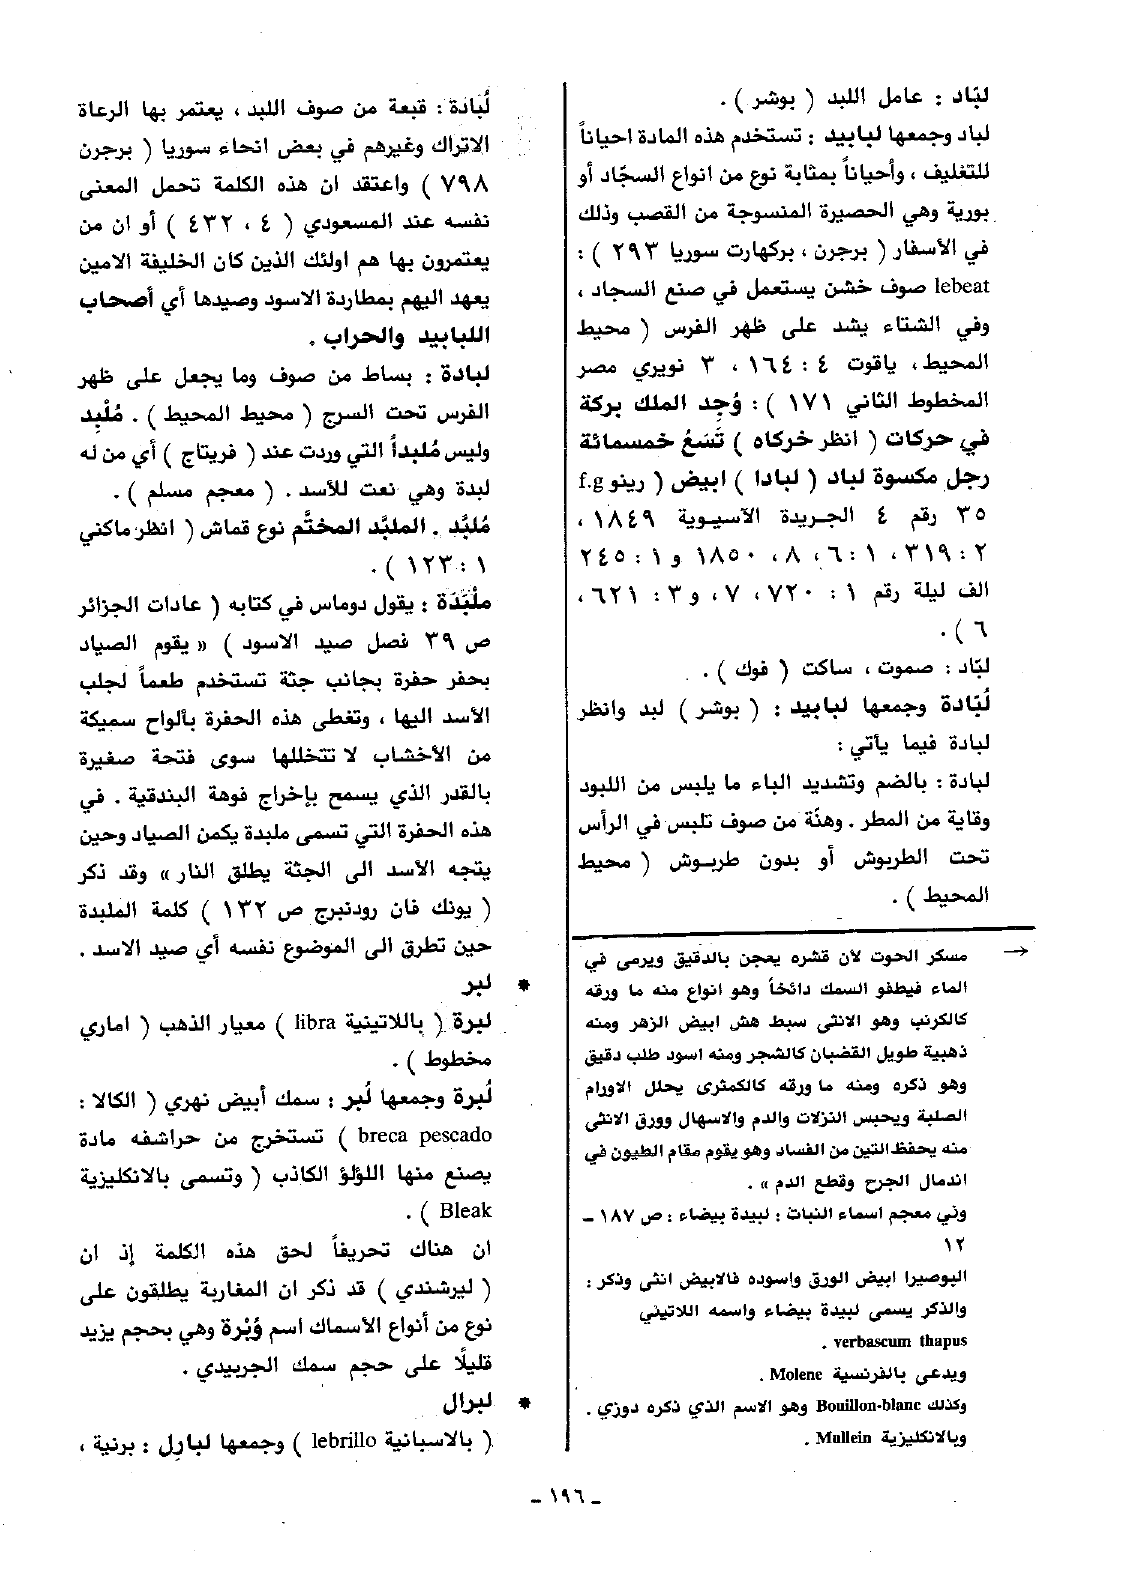 لبّاد : عامل اللبد ( بوشر ) .
لباد وجمعها لبابيد : تستخدم هذه المادة احياناً
للتغليف ، وأحياناً بمثابة نوع من انواع السجّاد أو
بورية وهي الحصيرة المنسوجة من القصب وذلك
في الأسفار ( برجرن ، بركهارت سوريا ٢٩٣ ) :
lebeat صوف خشن يستعمل في صنع السجاد ،
وفي الشتاء يشد على ظهر الفرس ( محيط
المحيط ، ياقوت ٤ : ١٦٤ ، ٣ نويري مصر
المخطوط الثاني ١٧١ ) : وُجد الملك بركة
في حركات ( انظر خركاه ) تَسَعُ خمسمائة
رجل مكسوة لباد ( لبادا ) ابيض ( رينو f.g
٣٥ رقم ٤ الجريدة الآسيوية ١٨٤٩ ،
٢ : ٣١٩ ، ١ : ٦ ، ٨ ، ١٨٥٠ و ١ : ٢٤٥
الف ليلة رقم ١ : ٧٢٠ ، ٧ ، و ٣ : ٦٢١ ،
٦ ) .
لبّاد : صموت ، ساكت ( فوك ) .
لُبّادة وجمعها لبابيد : ( بوشر ) لبد وانظر
لبادة فيما يأتي :
لبادة : بالضم وتشديد الباء ما يلبس من اللبود
وقاية من المطر . وهنَة من صوف تلبس في الرأس
تحت الطربوش أو بدون طربوش ( محيط
المحيط ) .
← مسكر الحوت لأن قشره يعجن بالدقيق ويرمى في
الماء فيطفو السمك دائخاً وهو انواع منه ما ورقه
كالكرنب وهو الانثى سبط هش ابيض الزهر ومنه
ذهبية طويل القضبان كالشجر ومنه اسود طلب دقيق
وهو ذكره ومنه ما ورقه كالكمثرى يحلل الاورام
الصلبة ويحبس النزلات والدم والاسهال وورق الانثى
منه يحفظ التين من الفساد وهو يقوم مقام الطيون في
اندمال الجرح وقطع الدم » .
وفي معجم اسماء النبات : لبيدة بيضاء : ص ١٨٧ –
١٢
البوصيرا ابيض الورق واسوده فالابيض انثى وذكر :
والذكر يسمى لبيدة بيضاء واسمه اللاتيني
verbascum thapus .
ويدعى بالفرنسية Molene .
وكذلك Bouillon-blanc وهو الاسم الذي ذكره دوزي .
وبالانكليزية Mullein .
لُبّادة : قبعة من صوف اللبد ، يعتمر بها الرعاة
الاتراك وغيرهم في بعض انحاء سوريا ( برجرن
٧٩٨ ) واعتقد ان هذه الكلمة تحمل المعنى
نفسه عند المسعودي ( ٤ ، ٤٣٢ ) أو ان من
يعتمرون بها هم اولئك الذين كان الخليفة الامين
يعهد اليهم بمطاردة الاسود وصيدها أي أصحاب
اللبابيد والحراب .
لبادة : بساط من صوف وما يجعل على ظهر
الفرس تحت السرج ( محيط المحيط ) . مُلْبِد
وليس مُلبداً التي وردت عند ( فريتاج ) أي من له
لبدة وهي نعت للأسد . ( معجم مسلم ) .
مُلبَّد . الملبَّد المختَّم نوع قماش ( انظر ماكني
١ : ١٢٣ ) .
ملْبَدَة : يقول دوماس في كتابه ( عادات الجزائر
ص ٣٩ فصل صيد الاسود ) « يقوم الصياد
بحفر حفرة بجانب جثة تستخدم طعماً لجلب
الأسد اليها ، وتغطى هذه الحفرة بألواح سميكة
من الأخشاب لا تتخللها سوى فتحة صغيرة
بالقدر الذي يسمح بإخراج فوهة البندقية . في
هذه الحفرة التي تسمى ملبدة يكمن الصياد وحين
يتجه الأسد الى الجثة يطلق النار » وقد ذكر
( يونك فان رودنبرج ص ١٣٢ ) كلمة الملبدة
حين تطرق الى الموضوع نفسه أي صيد الاسد .
* لبر
لبرة ( باللاتينية libra ) معيار الذهب ( اماري
مخطوط ) .
لُبرة وجمعها لُبر : سمك أبيض نهري ( الكالا :
breca pescado ) تستخرج من حراشفه مادة
يصنع منها اللؤلؤ الكاذب ( وتسمى بالانكليزية
Bleak ) .
ان هناك تحريفاً لحق هذه الكلمة إذ ان
( ليرشندي ) قد ذكر ان المغاربة يطلقون على
نوع من أنواع الأسماك اسم وُبْرة وهي بحجم يزيد
قليلًا على حجم سمك الجربيدي .
* لبرال
( بالاسبانية lebrillo ) وجمعها لبارل : برنية ،
– ١٩٦ –